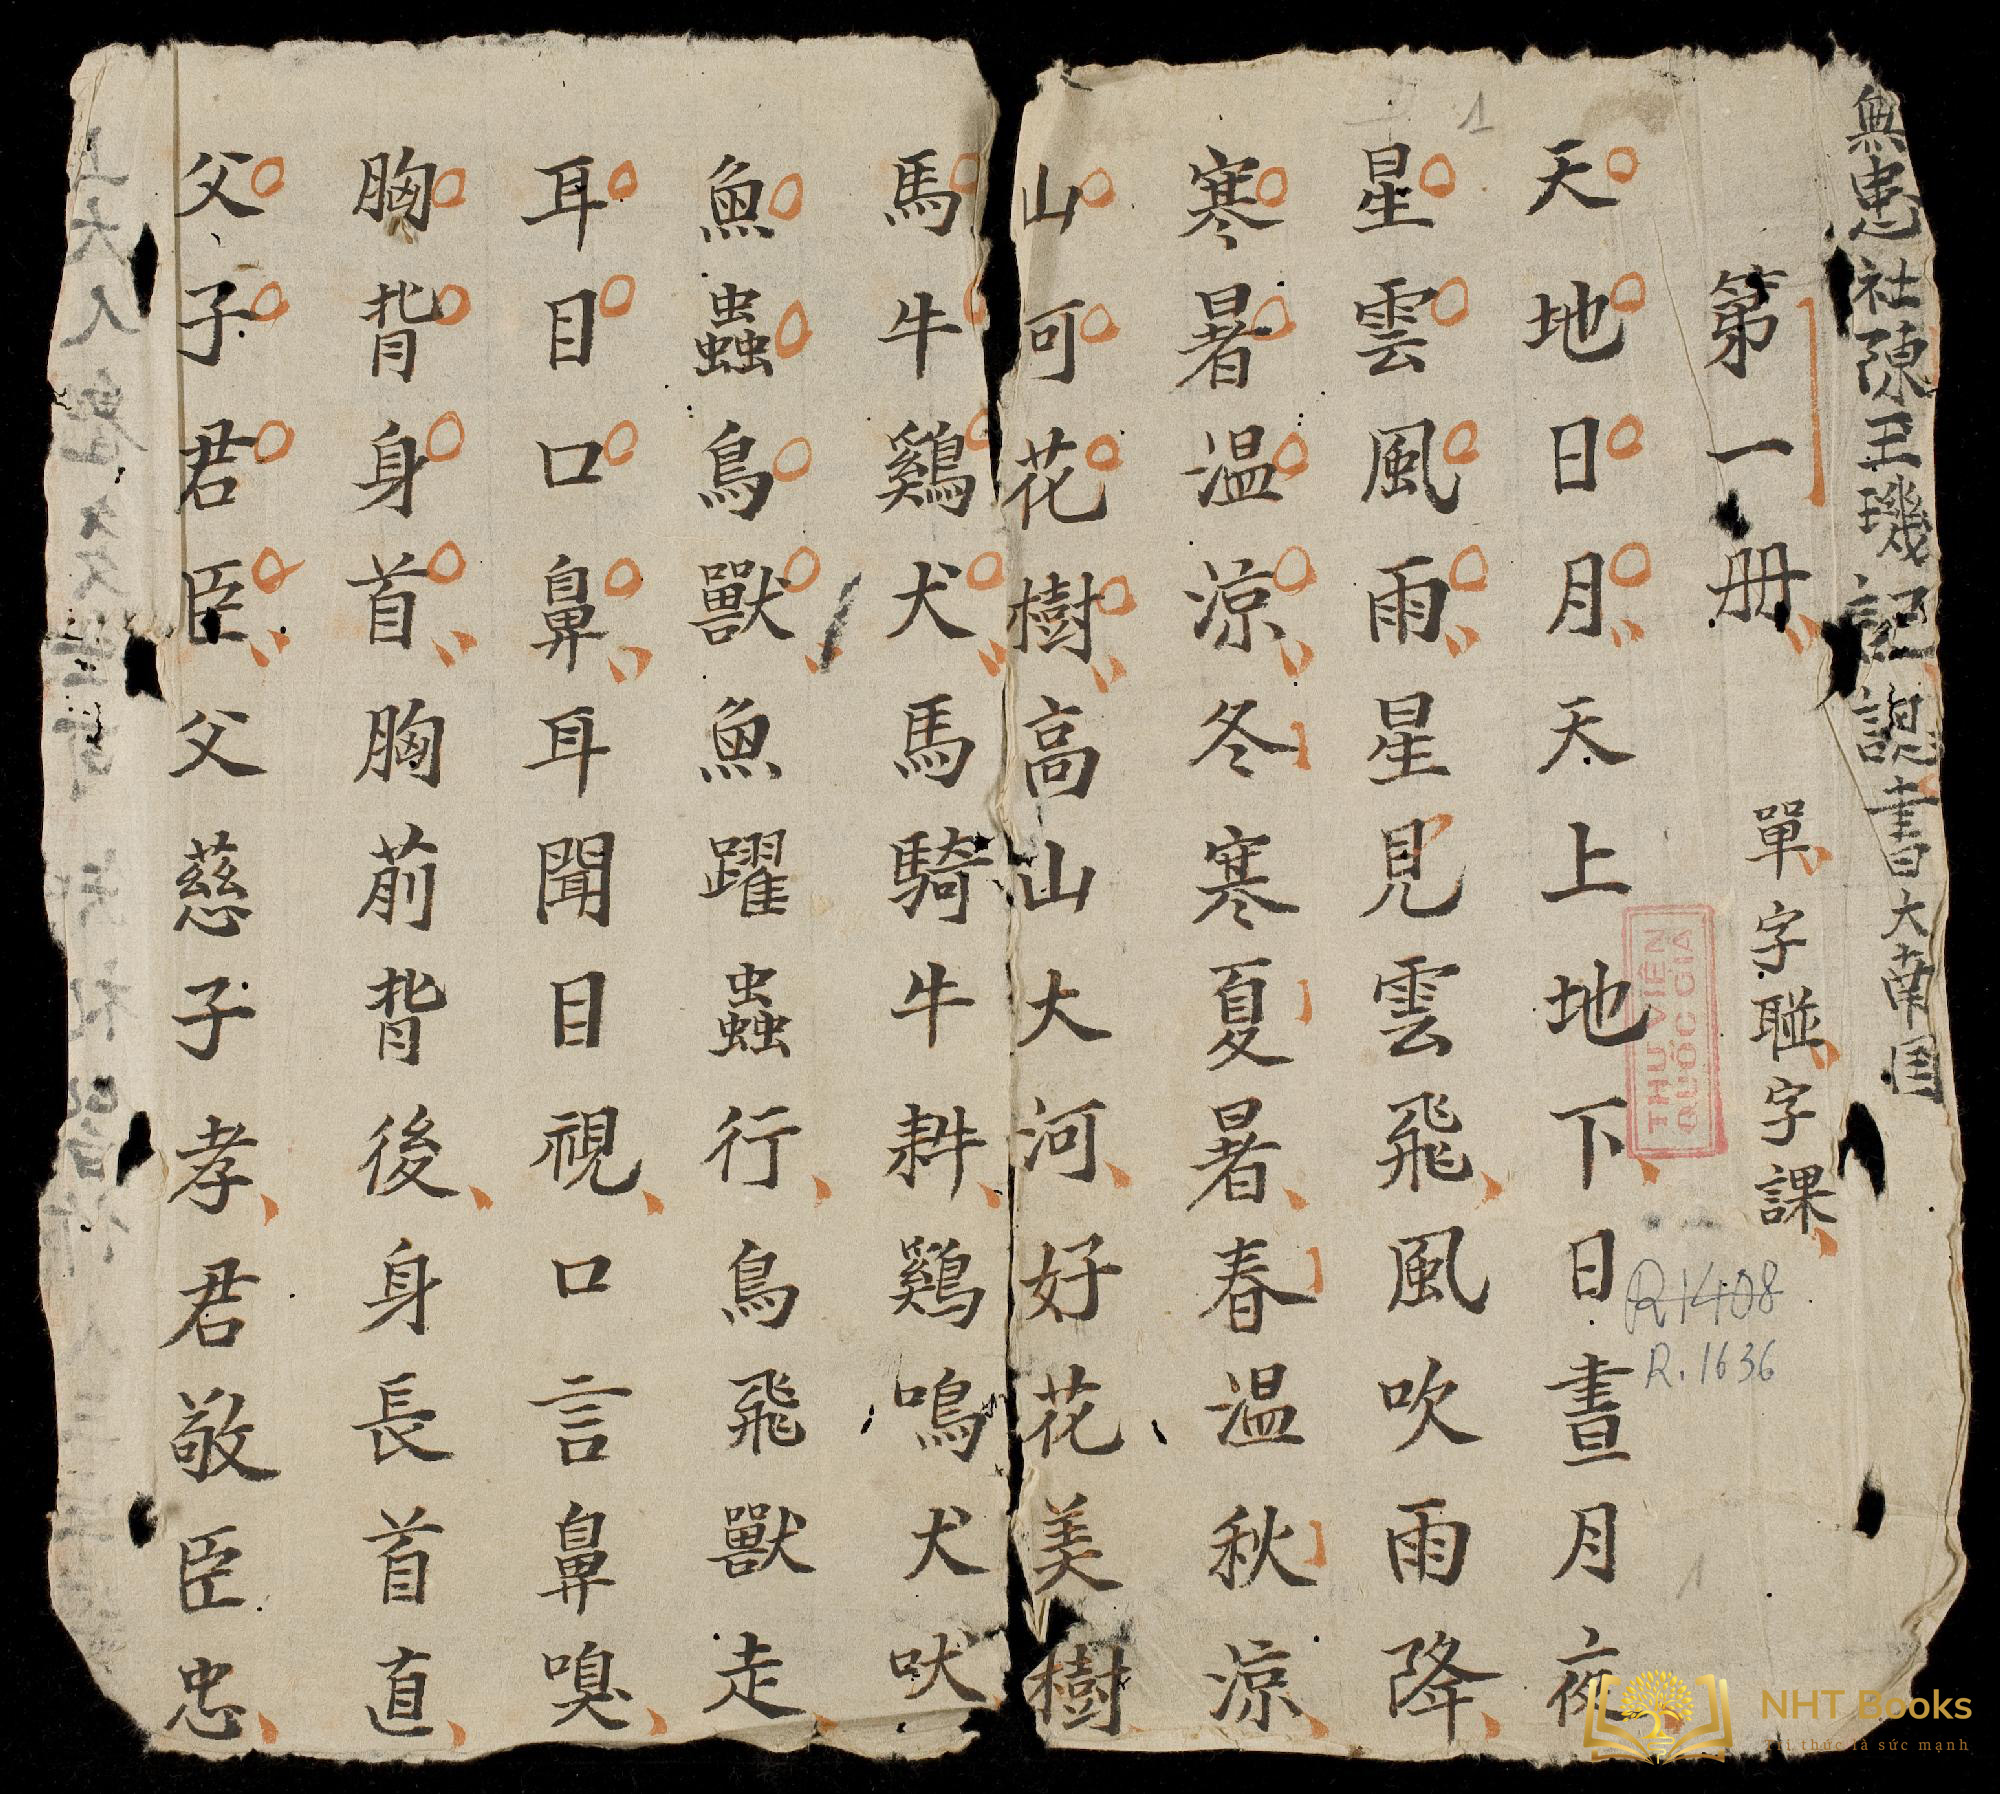 無患社陳王璣記認書大南国
第一册 單字聮字課
天地日月天上地下日晝月夜
星雲風雨星見雲飛風吹雨降
寒暑温凉冬寒夏暑春温秋凉
山可花樹高山大河好花美樹
馬牛鷄犬馬騎牛耕鷄鳴犬吠
魚蟲鳥獸魚躍蟲行鳥飛獸走
耳目口鼻耳聞目視口言鼻嗅
胸背身首胸前背後身長首直
父子君臣父慈子孝君敬臣忠
1
THƯ VIỆN
QUỐC GIA
R1408
R.1636
1
NHT Books
Tri thức là sức mạnh